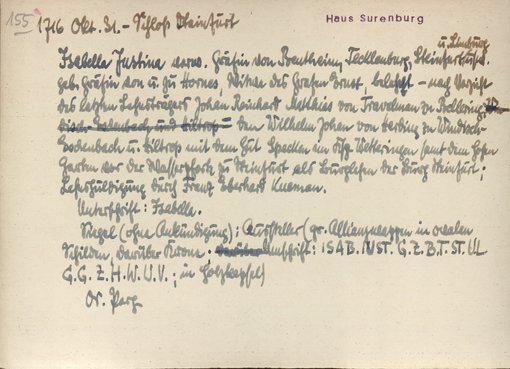 155
1716 Okt. 31. - Schloß Steinfurt
Haus Surenburg
u. Limburg
Isabella Justina verw. Gräfin von Bentheim, Tecklenburg, Steinfurt usw.
geb. Gräfin von u. zu Hornes, Witwe des Grafen Ernst belehnt - nach Verzicht
des letzten Lehnsträgers Johan Reinhart Matthias von Travelman zu
den Wilhelm Johan von zu
u. Hiltrop mit dem Gut Specken im Ksp. Wetteringen samt dem Hofen
Garten vor der Wasserpforte zu Steinfurt als Burglehen der Burg Steinfurt;
Lehnshuldigung durch Franz Eberhard
Unterschrift: Isabella.
Siegel (ohne Ankündigung): Aussteller (gr. Allianzwappen in ovalen
Schilden, darüber Krone; Umschrift: ISAB. IUST. G. Z. B. T. ST. U. L.
G. G. Z. H. W. U. V.; in Holzkapsel)
Or. Perg.